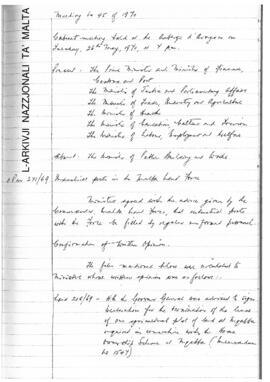 L-ARKIVJI NAZZJONALI TA' MALTA
Meeting No 45 of 1970
Cabinet meeting held at the Auberge d'Aragon on
Tuesday, 26th May, 1970, at 4 p.m.
Present: The Prime Minister and Minister of Finance,
Customs and Port
The Minister of Justice and Parliamentary Affairs
The Minister of Trade, Industry and Agriculture
The Minister of Health
The Minister of Education, Culture and Tourism
The Minister of Labour, Employment and Welfare
Absent: The Minister of Public Building and Works
271/69 posts in the Malta Land Force
Ministers agreed with the advice given by the
Commander, Malta Land Force, that posts
with the Force be filled by regular personnel
Confirmation of Written Opinion.
The files mentioned below were circulated to
Ministers whose written opinion was as follows:
Land 256/69 - H.E. the Governor General was advised to sign
for the termination of the lease
of one plot of land at
required in connection with the Home
Ownership Scheme at (Memorandum
No 1504)